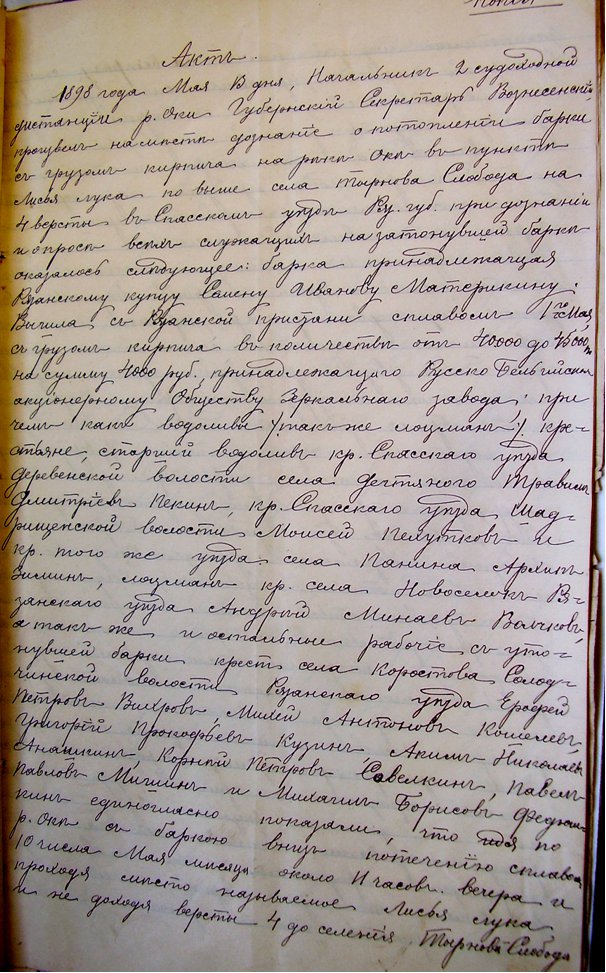 Копія
Актъ.
1898 года Мая 13 дня, Начальникъ 2 судоходной
дистанціи р. Оки Губернскій Секретарь Вознесенскій
произвелъ на мѣстѣ дознаніе о потопленіи барки
съ грузомъ кирпича на рѣкѣ Окѣ въ пунктѣ
Лисья лука по выше села Тырнова Слобода на
4 версты въ Спасскомъ уѣздѣ Ря. губ. при дознаніи
и опросѣ всѣмъ служащимъ на затонувшей баркѣ
оказалось слѣдующее: барка принадлежащая
Рязанскому купцу Семену Иванову Материкину;
Вышла съ Рязанской пристани сплавомъ 1го Мая
съ грузомъ кирпича въ количествѣ отъ 40000 до 45000
на сумму 4000 руб., принадлежащаго Русско Бельгійскому
акціонерному Обществу Зеркальнаго завода; при
чемъ какъ водоливы /такъ же лоцманъ/ кре-
стьяне, старшій водоливъ кр. Спасскаго уѣзда
деревенской волости села Дегтяного
Дмитріевъ Пекинъ, кр. Спасскаго уѣзда Шад-
рищенской волости Моисей Пехутковъ и
кр. того же уѣзда села Панина Архипъ
Зиминъ, лоцманъ кр. села Новоселокъ Ря-
занскаго уѣзда Андрей Минаевъ Волчковъ,
а такъ же и остальные рабочіе съ уто-
нувшей барки крест. села Коростова Солод-
чинской волости Рязанскаго уѣзда Ерофей
Петровъ Вихровъ, Михей Антоновъ Кошелевъ,
Григорій Прокофьевъ Кузинъ, Акимъ Николаевъ
Ананкинъ, Корній Петровъ Савелкинъ, Павелъ
Павловъ Мишинъ и Михаилъ Борисовъ
кинъ единогласно показали, что идя по
р. Окѣ съ баркою внизъ по теченію сплавомъ
10 числа Мая мѣсяца около 11 часовъ вечера и
проходя мѣсто называемое Лисья лука
и не доходя версты 4 до селенія Тырнова Слобода